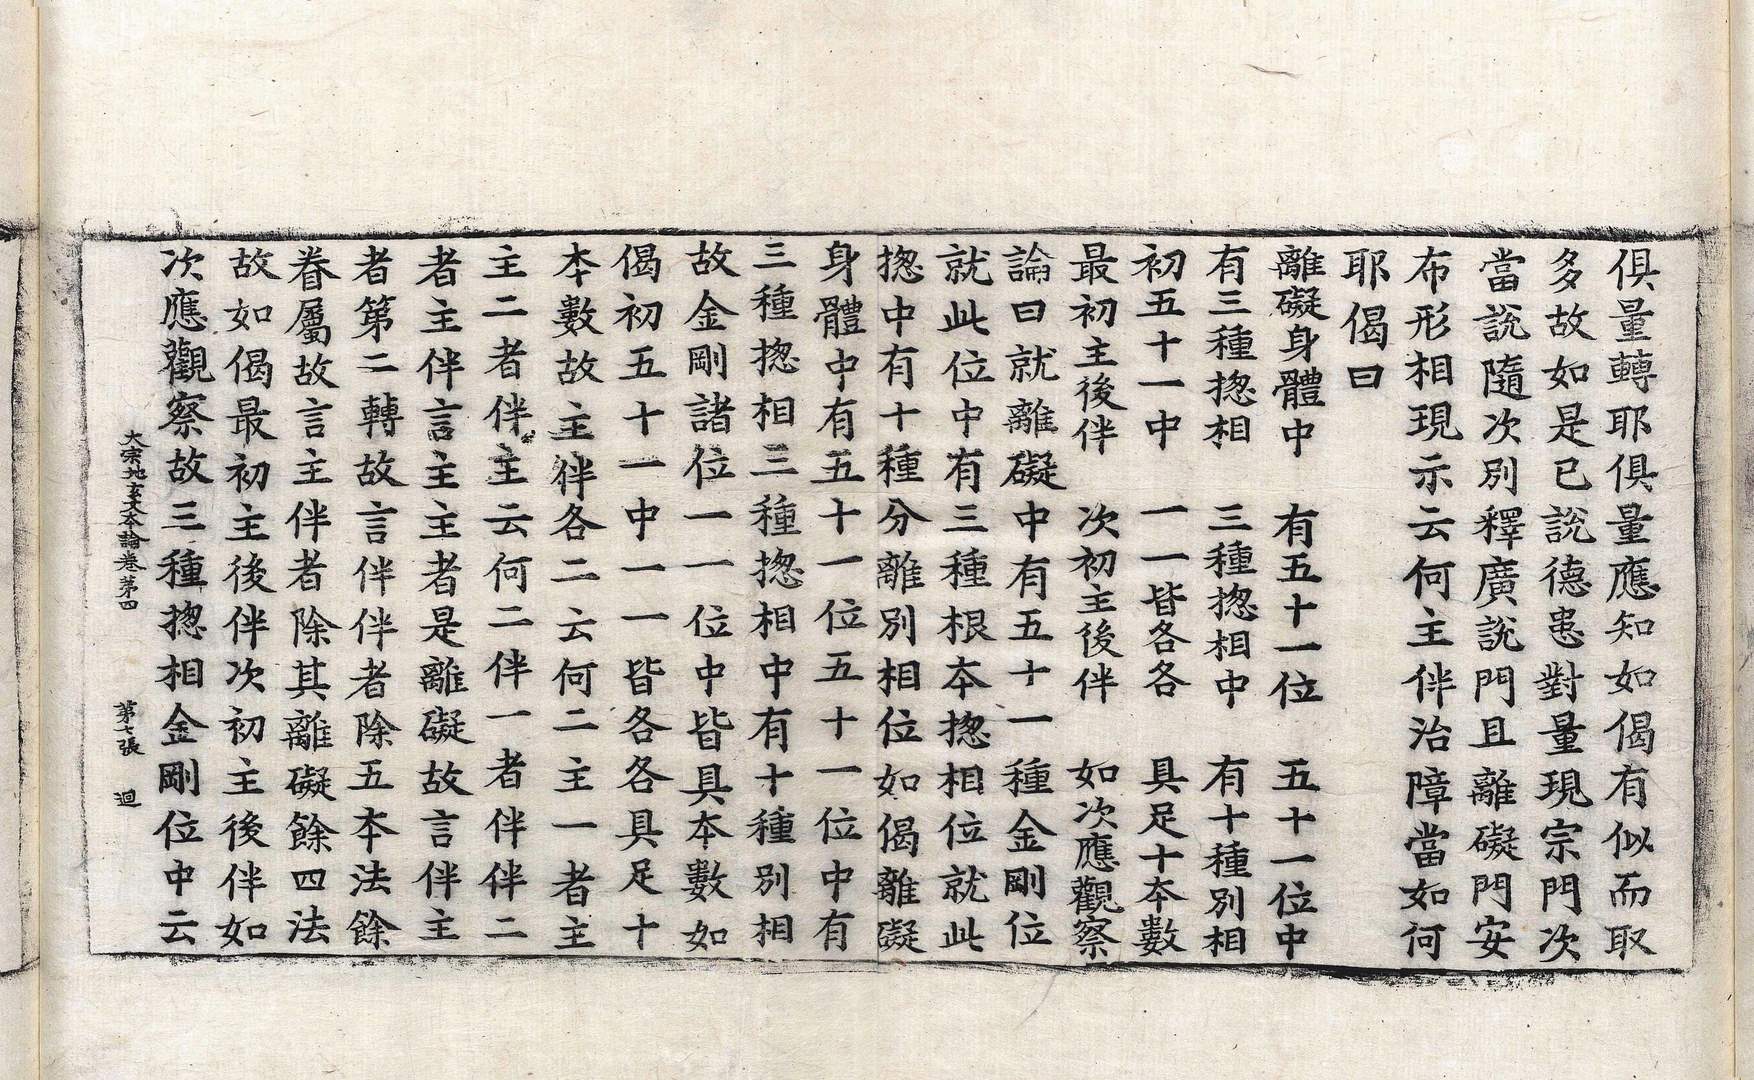 俱量轉耶俱量應知如偈有似而取
多故如是已說德患對量現宗門次
當說隨次別釋廣說門且離礙門安
布形相現示云何主伴治障當如何
耶偈曰
離礙身體中　有五十一位　五十一位中
有三種揔相　三種揔相中　有十種別相
初五十一中　一一皆各各　具足十夲數
最初主後伴　次初主後伴　如次應觀察
論曰就離礙中有五十一種金剛位
就此位中有三種根夲揔相位就此
揔中有十種分離別相位如偈離礙
身體中有五十一位五十一位中有
三種揔相三種揔相中有十種別相
故金剛諸位一一位中皆具夲數如
偈初五十一中一一皆各各具足十
夲數故主伴各二云何二主一者主
主二者伴主云何二伴一者伴伴二
者主伴言主主者是離礙故言伴主
者第二轉故言伴伴者除五夲法餘
眷屬故言主伴者除其離礙餘四法
故如偈最初主後伴次初主後伴如
次應觀察故三種揔相金剛位中云
大宗地玄文夲論卷第四　第七張　迴